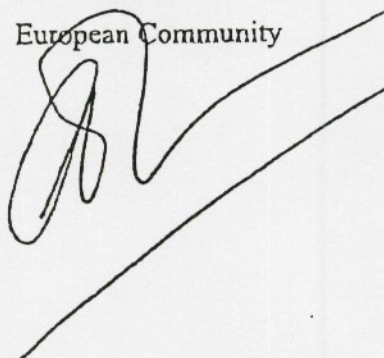 European Community